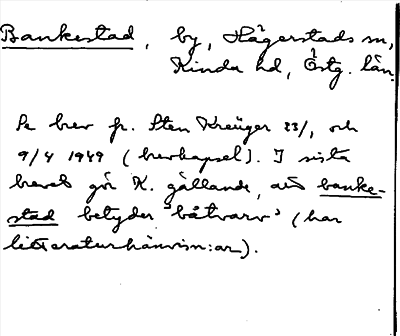 Bankestad, by, Hägerstads sn,
Kinda hd, Östg. län.
Se brev fr. Sten Kreüger 23/, och
9/4 1949 (brevkapsel). I sista
brevet gör K. gällande, att banke-
stad betyder 'båtvarv' (har
litteraturhänvisn:ar).